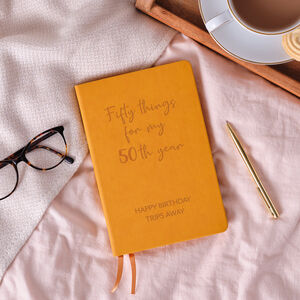 Fifty things
for my
50th year
HAPPY BIRTHDAY
TRIPS AWAY